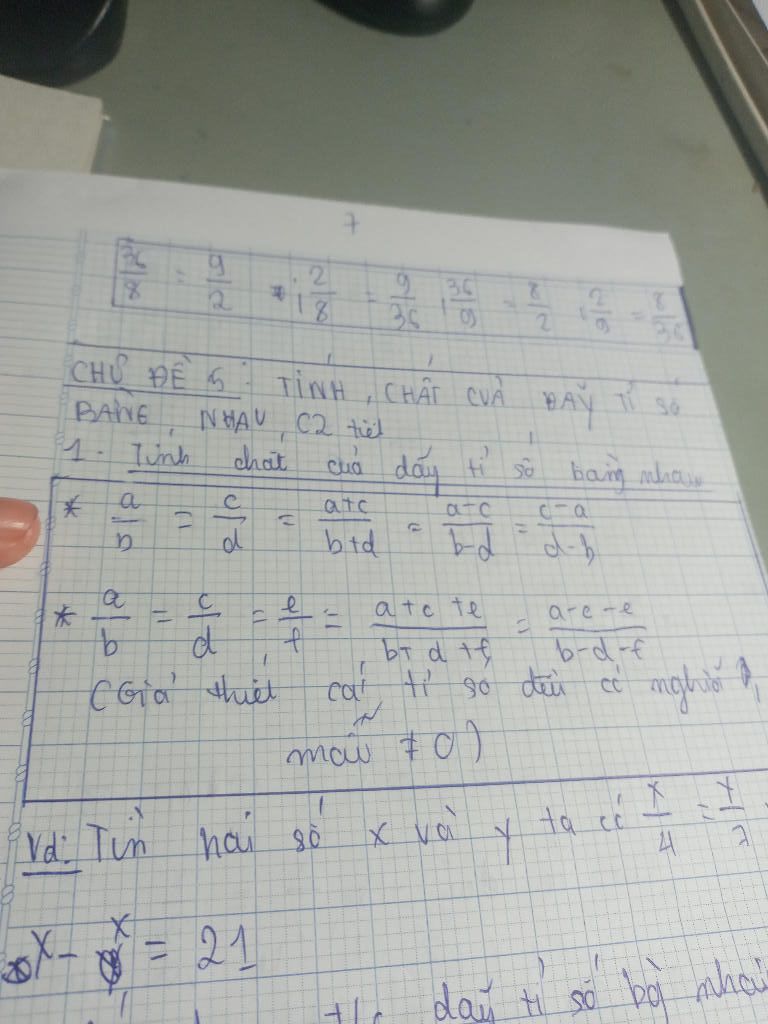 7
36/8 = 9/2 ; 2/8 = 9/36 , 36/9 = 8/2 ; 2/9 = 8/36
CHỦ ĐỀ 5 : TÍNH CHẤT CỦA DÃY TỈ SỐ
BẰNG NHAU (2 tiết
1. Tính chất của dãy tỉ số bằng nhau
* a/b = c/d = a+c/b+d = a-c/b-d = c-a/d-b
* a/b = c/d = e/f = a+c+e/b+d+f = a-c-e/b-d-f
(Giả thiết các tỉ số đều có nghĩa,
mẫu ≠ 0)
Vd: Tìm hai số x và y ta có x/4 = y/7
x - x = 21
dãy tỉ số nhau